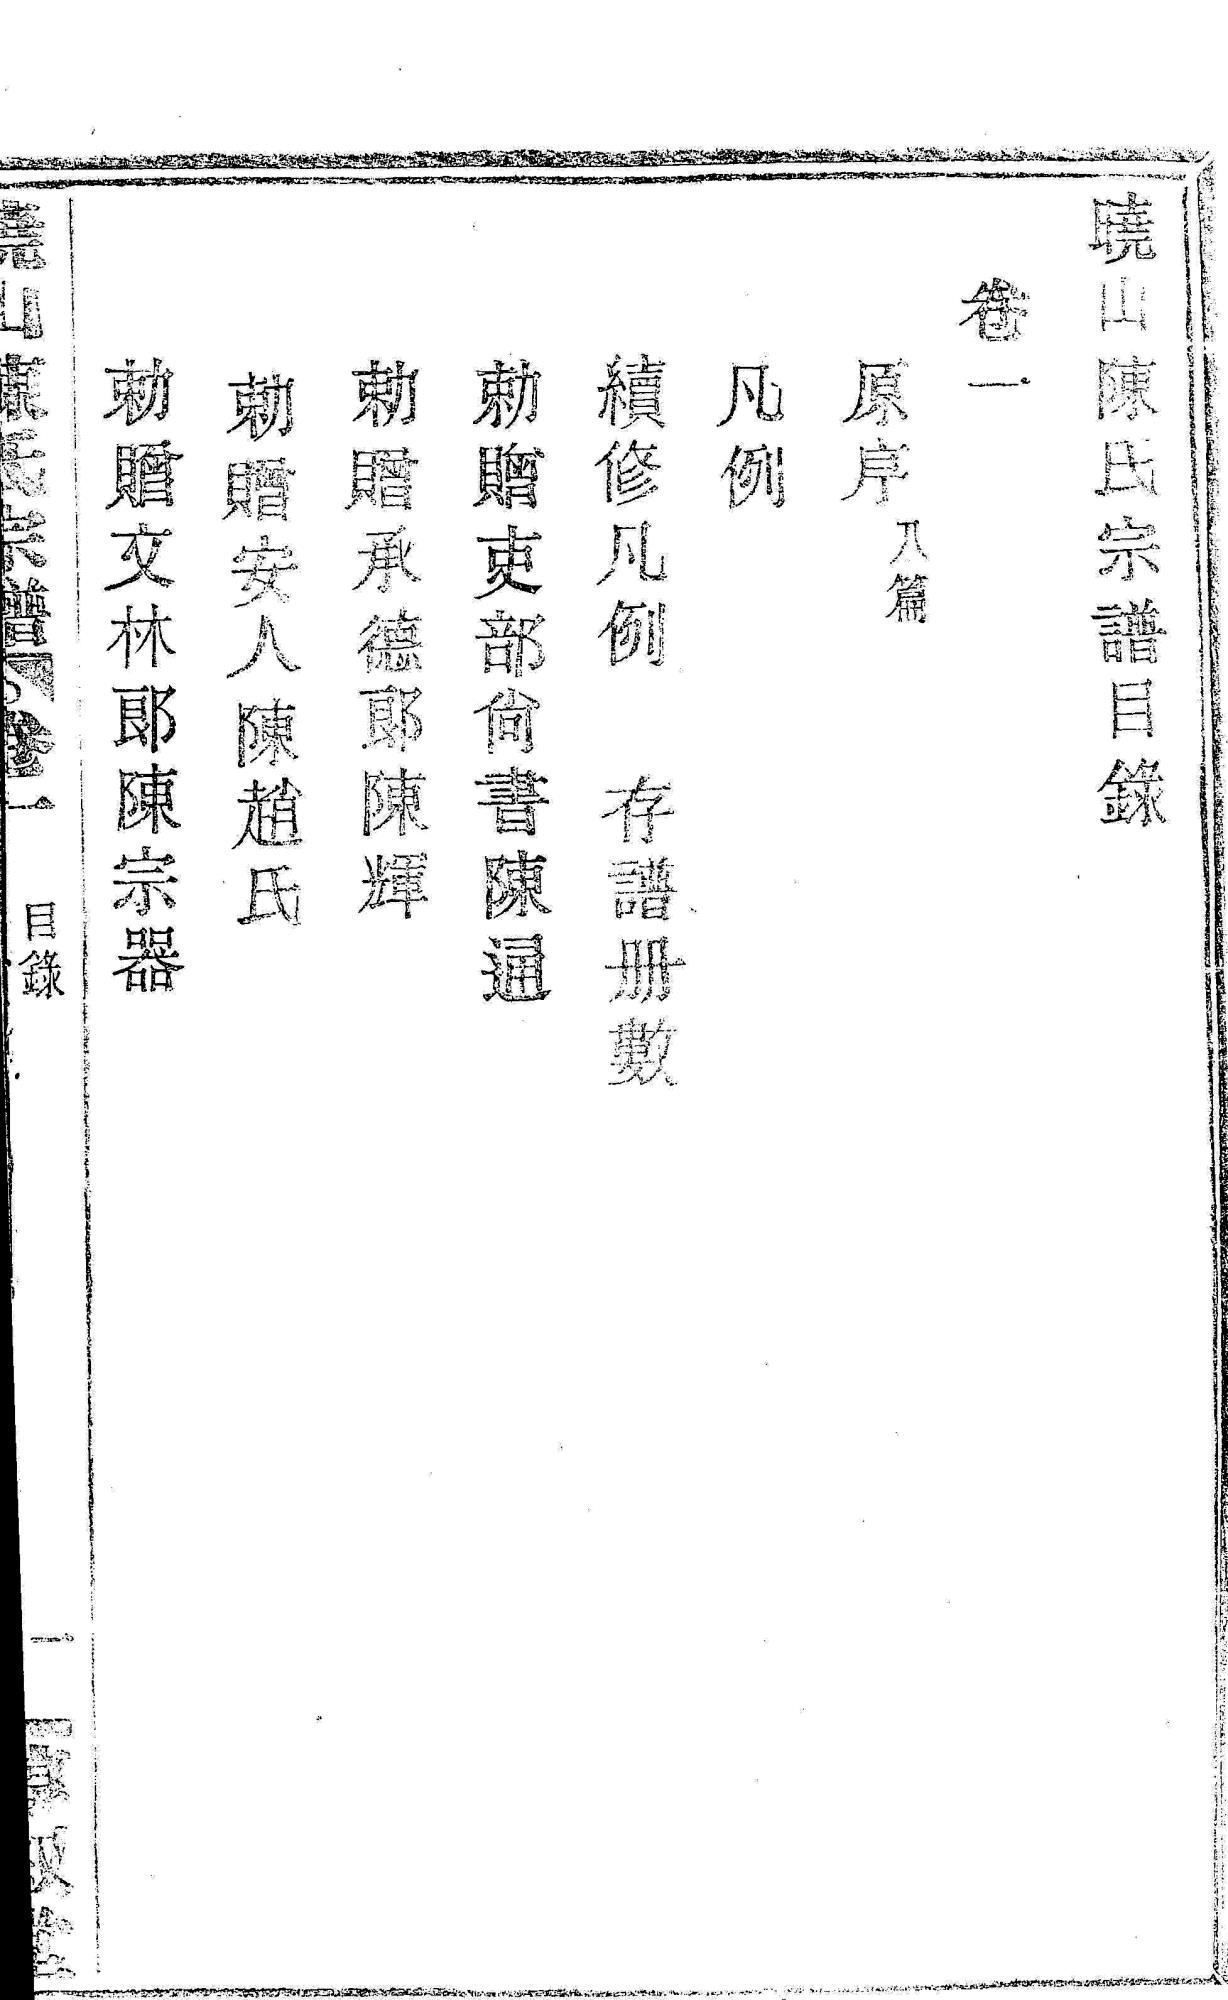 曉山陳氏宗譜目錄
卷一
原序 八篇
凡例
續修凡例 存譜册數
勅贈吏部尙書陳通
勅贈承德郎陳輝
勅贈安人陳趙氏
勅贈文林郎陳宗器
曉山陳氏宗譜 卷一 目錄 一